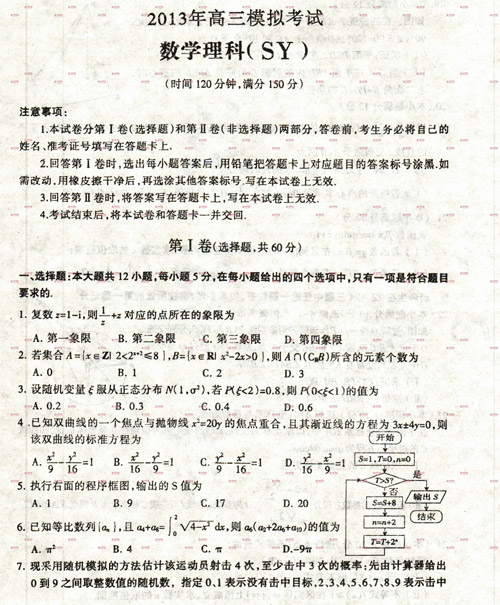 2013年高三模拟考试
数学理科(SY)
(时间120分钟,满分150分)
注意事项:
1.本试卷分第Ⅰ卷(选择题)和第Ⅱ卷(非选择题)两部分,答卷前,考生务必将自己的
姓名、准考证号填写在答题卡上.
2.回答第Ⅰ卷时,选出每小题答案后,用铅笔把答题卡上对应题目的答案标号涂黑.如
需改动,用橡皮擦干净后,再选涂其他答案标号.写在本试卷上无效.
3.回答第Ⅱ卷时,将答案写在答题卡上,写在本试卷上无效.
4.考试结束后,将本试卷和答题卡一并交回.
第Ⅰ卷(选择题,共60分)
一、选择题:本大题共12小题,每小题5分,在每小题给出的四个选项中,只有一项是符合题目
要求的.
1. 复数z=1-i,则1/z+z对应的点所在的象限为
A. 第一象限 B. 第二象限 C. 第三象限 D. 第四象限
2. 若集合A={x∈Z| 2<2^{x+2}≤8},B={x∈R| x²-2x>0},则A∩(C_RB)所含的元素个数为
A. 0 B. 1 C. 2 D. 3
3. 设随机变量ξ服从正态分布N(1,σ²),若P(ξ<2)=0.8,则P(0<ξ<1)的值为
A. 0.2 B. 0.3 C. 0.4 D. 0.6
4. 已知双曲线的一个焦点与抛物线x²=20y的焦点重合,且其渐近线的方程为3x±4y=0,则
该双曲线的标准方程为
A. x²/9-y²/16=1 B. x²/16-y²/9=1 C. y²/9-x²/16=1 D. y²/16-x²/9=1
5. 执行右面的程序框图,输出的S值为
A. 1 B. 9 C. 17 D. 20
6. 已知等比数列{aₙ},且a₄+a₈=∫₀²√(4-x²) dx,则a₆(a₂+2a₆+a₁₀)的值为
A. π² B. 4 C. π D. -9π
7. 现采用随机模拟的方法估计该运动员射击4次,至少击中3次的概率:先由计算器给出
0到9之间取整数值的随机数, 指定0、1表示没有击中目标,2、3、4、5、6、7、8、9表示击中
开始
S=1,T=0,n=0
T>S?
是
否
S=S+8
n=n+2
T=T+2ⁿ
输出S
结束